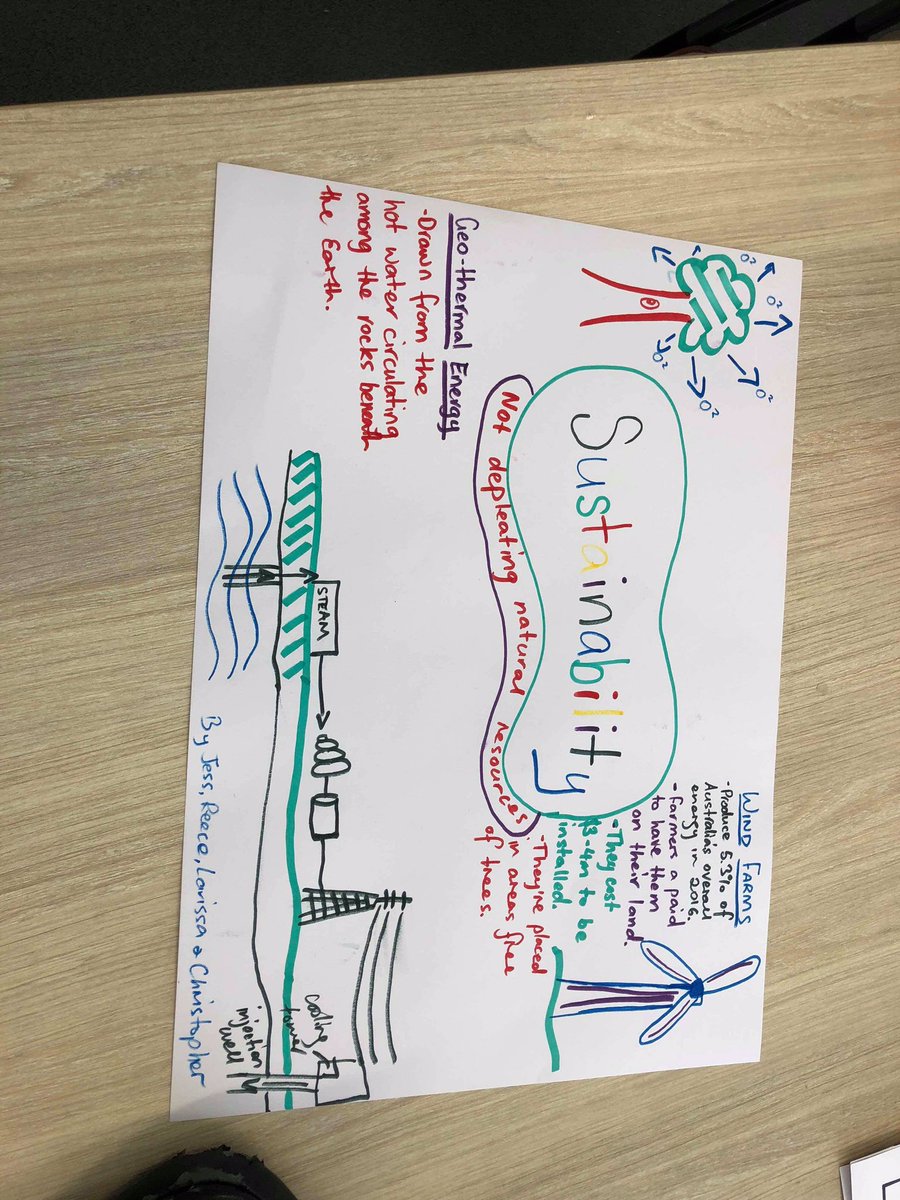 O²
O²
O²
O²
O²
Sustainability
Not depleating natural resources
WIND FARMS
- Produce 5.3% of
Australia's overall
energy in 2016.
- Farmers a paid
to have them
on their land.
- They cost
$3-4m to be
installed.
- They're placed
in areas free
of trees.
Geo-thermal Energy
- Drawn from the
hot water circulating
among the rocks beneath
the Earth.
STEAM
cooling
tower
injection
well
By Jess, Reece, Larissa & Christopher